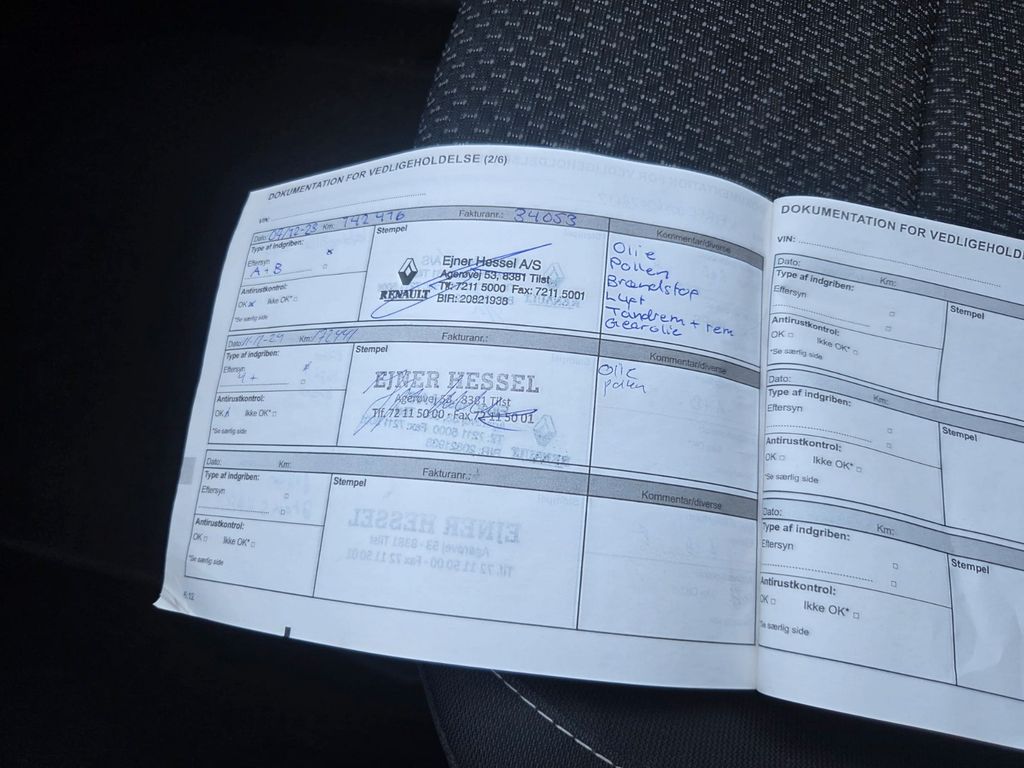 DOKUMENTATION FOR VEDLIGEHOLDELSE (2/6)
VIN:
Dato: 04/12-23 Km: 142 416 Fakturanr.: 34053
Type af indgriben:
Eftersyn
A + B
Antirustkontrol:
OK Ikke OK*
*Se særlig side
Stempel
Ejner Hessel A/S
Agerøvej 53, 8381 Tilst
Tlf. 7211 5000 Fax: 7211 5001
BIR: 20821938
RENAULT
Kommentar/diverse
Olie
Pollen
Brændstof
Luft
Tandrem + rem
Gearolie
Dato: Km: Fakturanr.:
Type af indgriben:
Eftersyn
Antirustkontrol:
OK Ikke OK*
*Se særlig side
Stempel
EJNER HESSEL
Agerøvej 53, 8381 Tilst
Tlf. 72 11 50 00 - Fax 72 11 50 01
Kommentar/diverse
Olie
pollen
Dato: Km: Fakturanr.:
Type af indgriben:
Eftersyn
Antirustkontrol:
OK Ikke OK*
*Se særlig side
Stempel
Kommentar/diverse
6.12
DOKUMENTATION FOR VEDLIGEHOLD
VIN:
Dato: Km:
Type af indgriben:
Eftersyn
Antirustkontrol:
OK Ikke OK*
*Se særlig side
Stempel
Dato: Km:
Type af indgriben:
Eftersyn
Antirustkontrol:
OK Ikke OK*
*Se særlig side
Stempel
Dato: Km:
Type af indgriben:
Eftersyn
Antirustkontrol:
OK Ikke OK*
*Se særlig side
Stempel